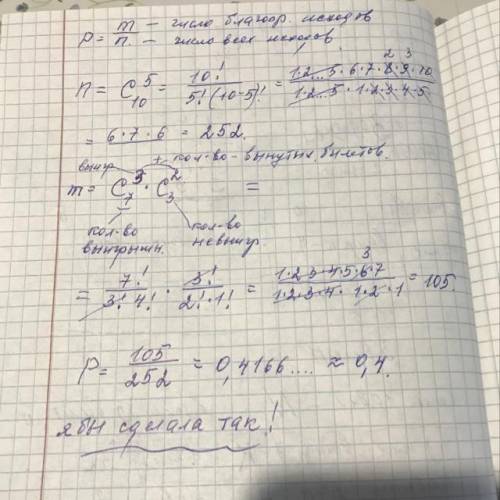 P = m — число благопр. исходов
n — число всех исходов
n = C₁₀⁵ = 10! / 5!(10-5)! = 1·2...5·6·7·8·9·10 / 1·2...5·1·2·3·4·5
2 3
= 6·7·6 = 252.
выигр + кол-во вынутых билетов.
m = C₇³ · C₃² =
кол-во выигрышн. кол-во невыигр.
3
= 7! / 3!·4! · 3! / 2!·1! = 1·2·3·4·5·6·7 / 1·2·3·4·1·2·1 = 105.
P = 105 / 252 = 0,4166.... ≈ 0,4.
я бы сделала так!